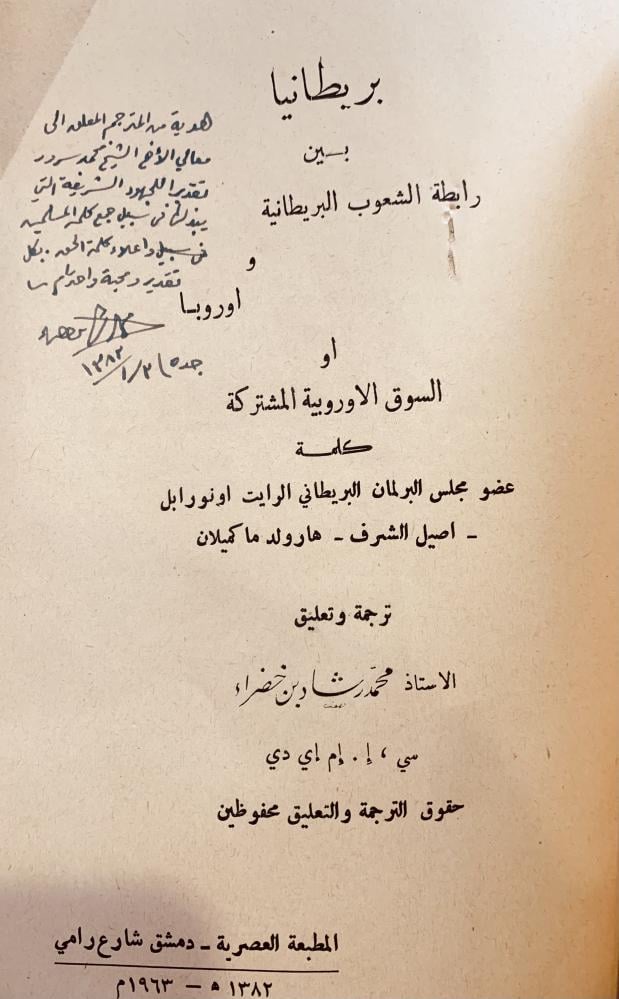 بريطانيا
بسين
رابطة الشعوب البريطانية
و
اوروبا
او
السوق الاوروبية المشتركة
كلمة
عضو مجلس البرلمان البريطاني الرايت اونورابل
- اصيل الشرف - هارولد ماكميلان
ترجمة وتعليق
الاستاذ محمد رشاد بن خضراء
سي ، إ . إم إي دي
حقوق الترجمة والتعليق محفوظين
المطبعة العصرية - دمشق شارع رامي
١٣٨٢ ه - ١٩٦٣ م
هدية من المترجم المعلق الى
معالي الأخ الشيخ محمد سرور
تقديرا للجهود الشريفة التي
يبذلها في سبيل جمع كلمة المسلمين
في سبيل واعلاء كلمة الحق . بكل
تقدير ومحبة واحترام
جدة ١٣٨٣/١/٢